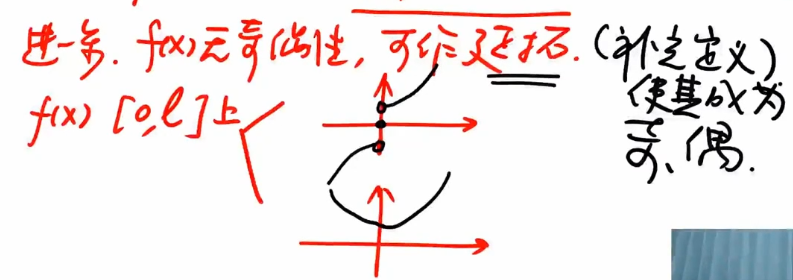 进一步. f(x)无奇偶性, 可作延拓. (补充定义)
使其成为
f(x) [0,l]上
奇、偶.